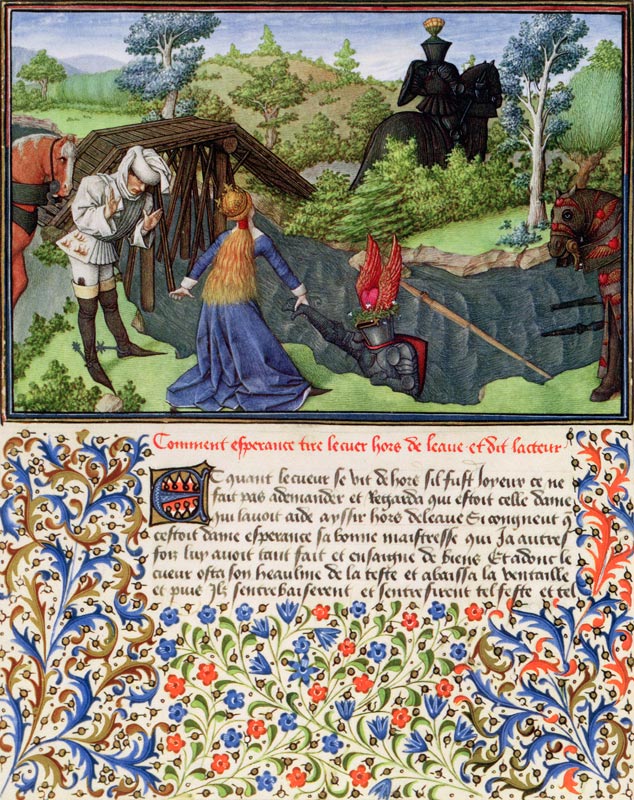 Comment esperance tire le cuer hors de leaue et dit lacteur
Et quant le cueur se vit dehors sil fust Joyeux ce ne
fait pas ademander et Regarda qui estoit celle dame
qui lauoit aide ayssir hors de leaue Si congneut q
cestoit dame esperance sa bonne maistresse qui Ja autres
foiz luy auoit tant fait et enseigne de biens Et adonc le
cueur osta son heaulme de la teste et abaissa la ventaille
et puis Ilz sentrebaiserent et sentrefirent tel feste et tel